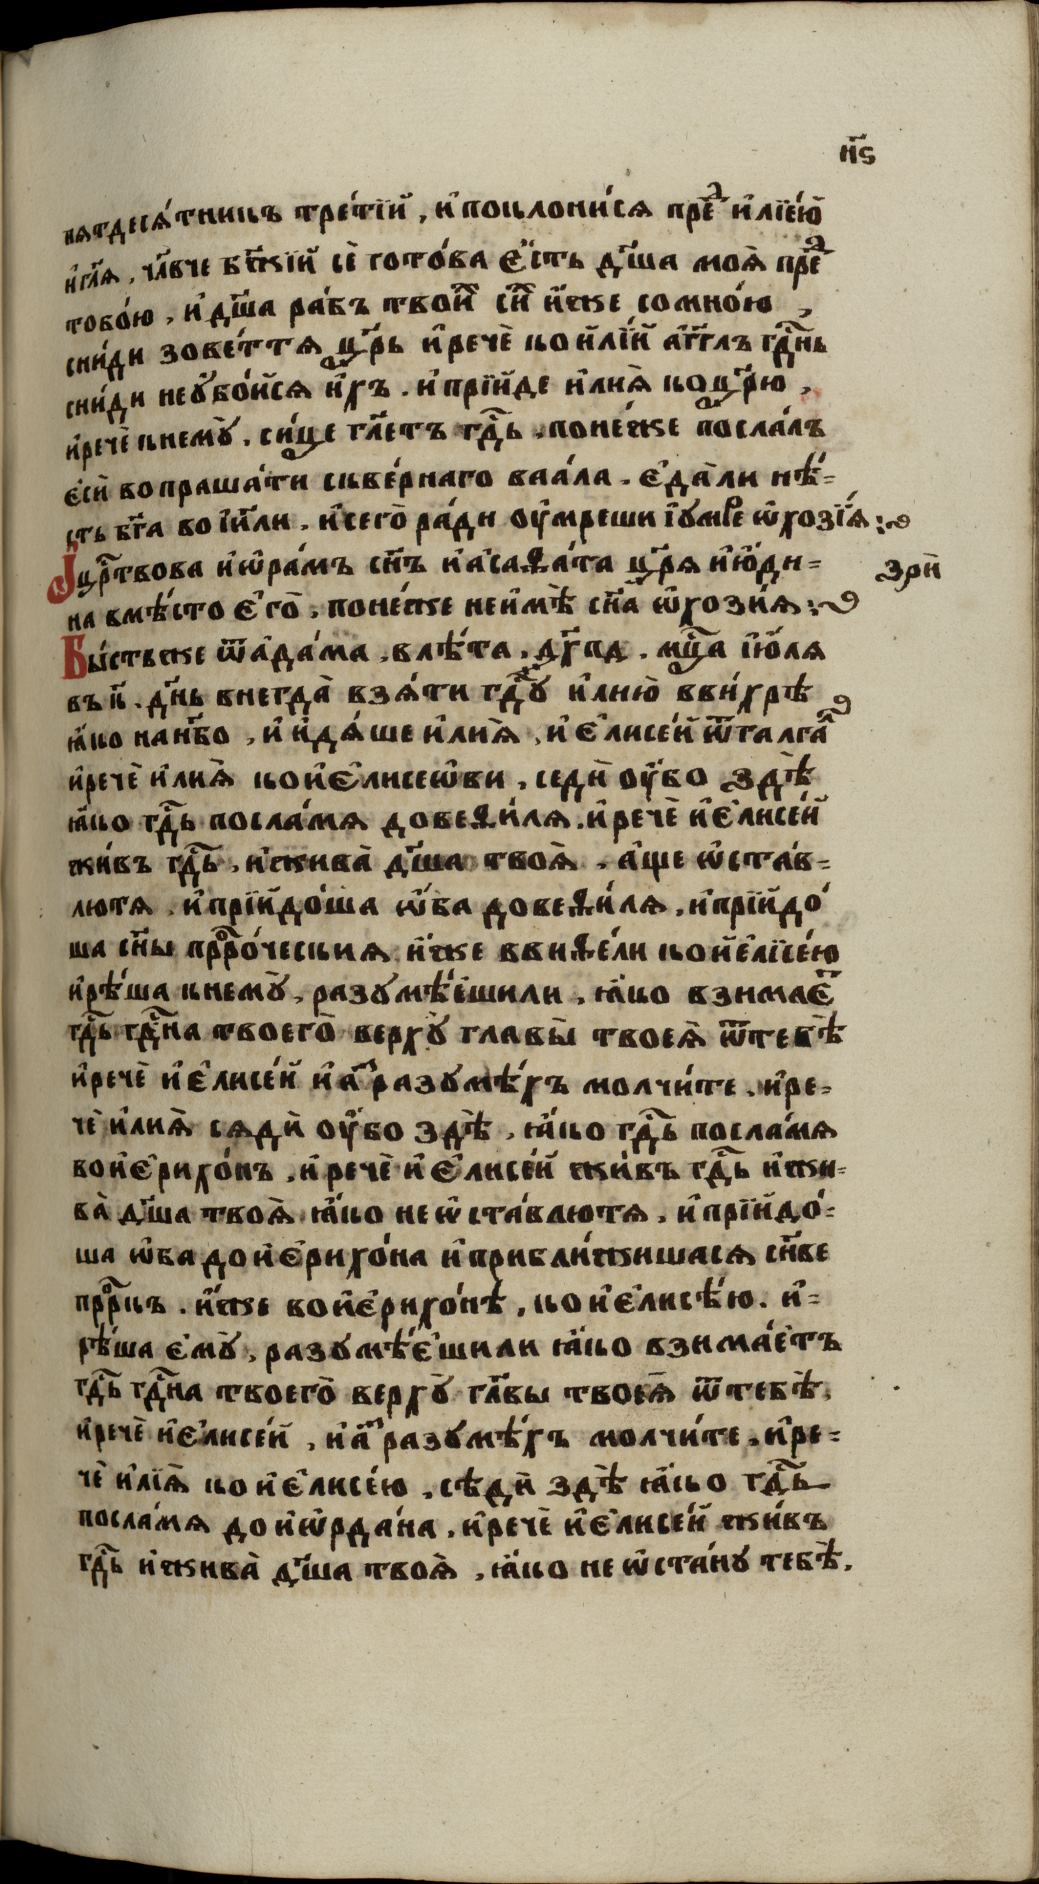 н҃ѕ
пятдеся́тникъ тре́тїй, и҆поклони́ся прⷣе и҆лїе́ю
и҆гл҃я, чл҃вче бж҃їй сѐ гото́ва є҆́сть дш҃а моя̀ прⷣе
тобо́ю, и҆дш҃а ра́бъ твои́хъ си́хъ и҆́же сомно́ю,
сни́ди зове́ття цр҃ь и҆речѐ кои҆лїи́ а҆́гг҃лъ гдⷭ҇нь
сни́ди неꙋ҆бо́йся и҆́хъ. и҆прїи́де и҆лия̀ коцр҃ю,
и҆речѐ кнемꙋ̀, си́це гл҃етъ гдⷭ҇ь, поне́же посла́лъ
є҆сѝ вопраша́ти скве́рнаго ваа́ла. є҆да̀ли нѣ́=
сть бг҃а воі҆и҃ли, и҆сего̀ ра́ди оу҆́мреши і҆ꙋмре ѡ҆хозі́я:
І҆црⷭ҇твова и҆ѡ҆ра́мъ сн҃ъ и҆а҆саѳа́та цр҃я и҆ю҆ди=
зрѝ
на вмѣ́сто є҆го̀, поне́же неи҆мѣ̀ сн҃а ѡ҆хози́я:
Бы́стьже ѿа҆да́ма, влѣ́та, ҂дх҃пд. мцⷭ҇а і҆ю́ля
въ к҃. дн҃ь внегда̀ взя́ти гдⷭ҇ꙋ и҆лию̀ вви́хрѣ
ꙗ҆́ко нанб҃о, и҆ и҆дя́ше и҆лия̀, и҆ є҆лисе́й ѿгалга́л
и҆речѐ и҆лия̀ кои҆є҆лисеѡ́ви, седѝ оу҆́бо здѣ̀
ꙗ҆́ко гдⷭ҇ь посла́мя довеѳи́ля. и҆речѐ и҆є҆лисе́й
жи́въ гдⷭ҇ь, и҆жива̀ дш҃а твоя̀, а҆́ще ѡ҆ста́в=
лютя, и҆прїидо́ша ѡ҆́ба довеѳи́ля, и҆прїидо́
ша сн҃ы прⷪ҇ро́ческия и҆́же ввиѳе́ли кои҆є҆лїсе́ю
и҆рѣ́ша кнемꙋ̀, разꙋмѣ́єшили, ꙗ҆́ко взимаⷮє
гдⷭ҇ь гдⷭ҇на твоего̀ верхꙋ̀ главы̀ твоея̀ ѿтебѣ̀
и҆речѐ и҆є҆лисе́й и҆а҆́зъ разꙋмѣ́хъ молчи́те, и҆ре=
чѐ и҆лия̀ сядѝ оу҆́бо здѣ̀, ꙗ҆́ко гдⷭ҇ь посла́мя
вои҆є҆рихо́нъ, и҆речѐ и҆є҆лисе́й жи́въ гдⷭ҇ь и҆жи=
ва̀ дш҃а твоя̀ ꙗ҆́ко неѡ҆ста́влютя, и҆прїидо́=
ша ѡ҆́ба дои҆є҆рихо́на и҆прибли́жишася сн҃ве
прⷪ҇ркъ. и҆́же вои҆є҆рихо́нѣ, кои҆є҆лисѣ́ю. и҆=
рѣ́ша є҆мꙋ̀, разꙋмѣ́є҆шили ꙗ҆́ко взима́етъ
гдⷭ҇ь гдⷭ҇на твоего̀ верхꙋ̀ гл҃вы твоея̀ ѿтебѣ̀,
и҆речѐ и҆є҆лисе́й, и҆а҆́зъ разꙋмѣ́хъ молчи́те, и҆ре=
чѐ и҆лїя̀ кои҆є҆лисе́ю, сѣдѝ здѣ̀ ꙗ҆́ко гдⷭ҇ь
посла́мя дои҆ѡ҆рда́на, и҆речѐ и҆є҆лисе́й жи́въ
гдⷭ҇ь и҆жива̀ дш҃а твоя̀, ꙗ҆́ко неѡ҆ста́нꙋ тебѣ̀.